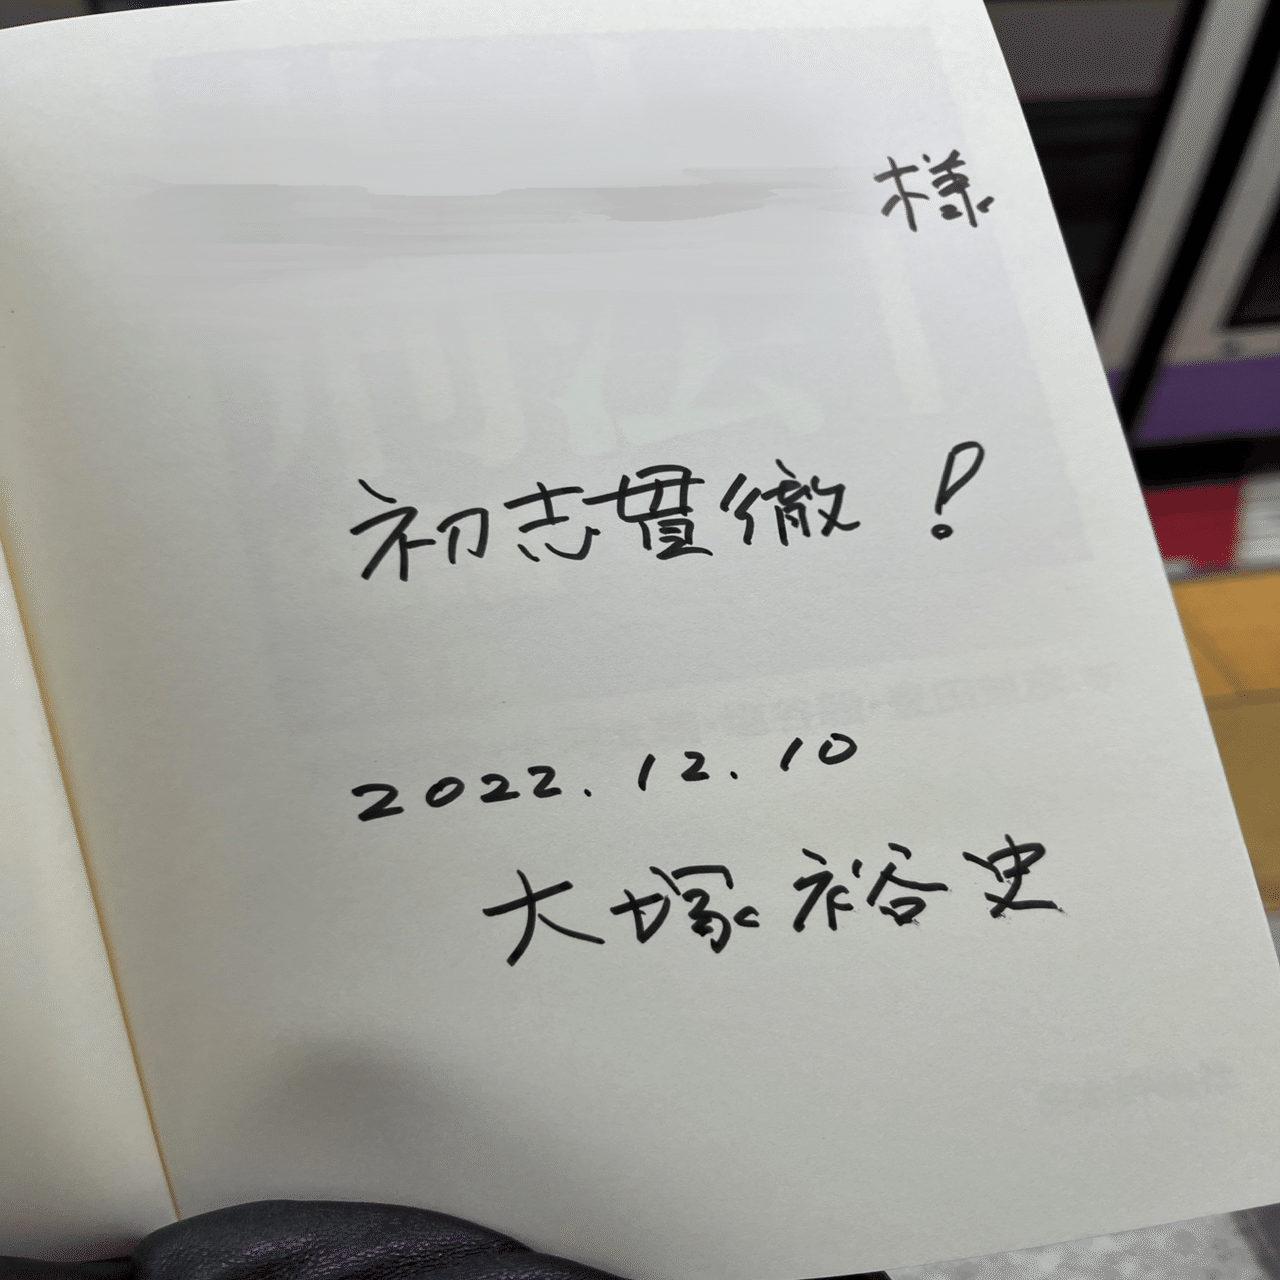 様
初志貫徹!
2022.12.10
大塚裕史